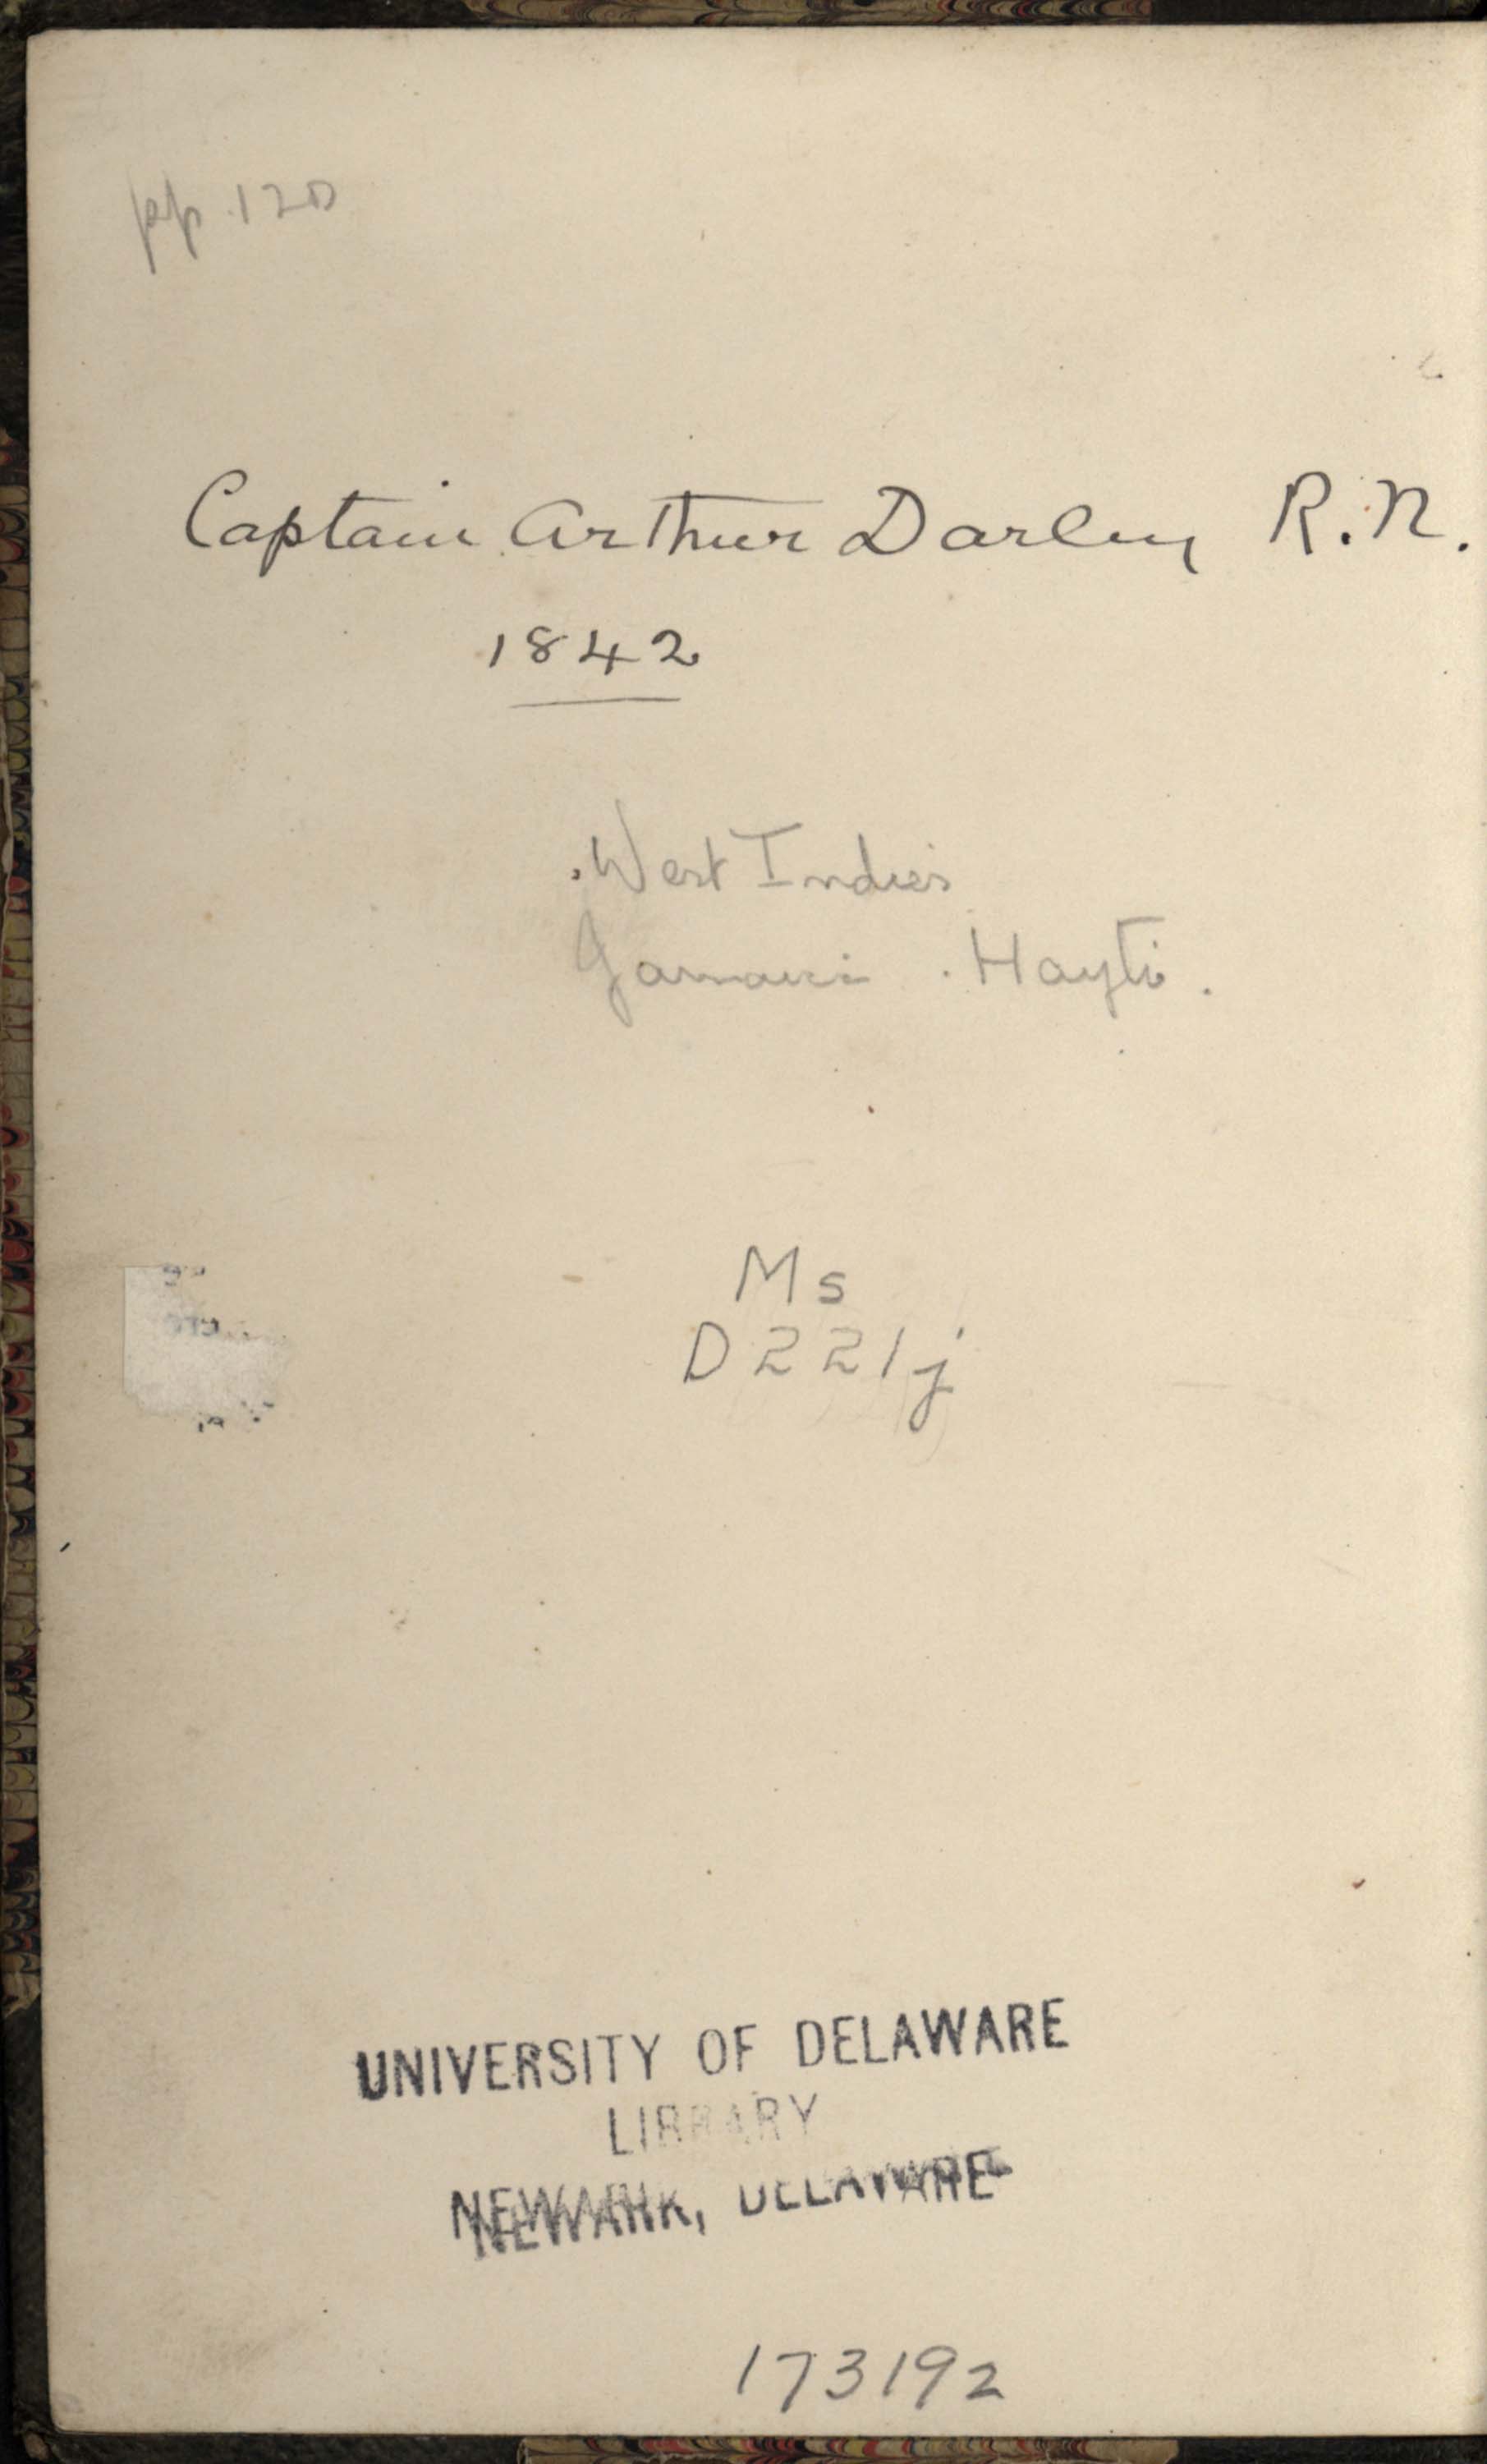 pp. 120
Captain Arthur Darley R.N.
1842
West Indies
Jamaica. Hayti.
Ms
D221j
UNIVERSITY OF DELAWARE
LIBRARY
NEWARK, DELAWARE
173192